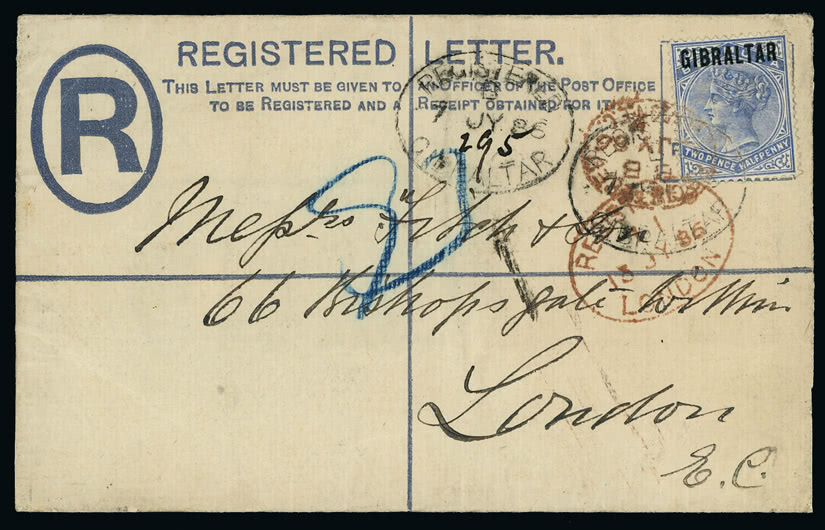 REGISTERED LETTER.
THIS LETTER MUST BE GIVEN TO AN OFFICER OF THE POST OFFICE
TO BE REGISTERED AND A RECEIPT OBTAINED FOR IT.
R
GIBRALTAR
TWO PENCE HALFPENNY
REGISTERED
JY 86
GIBRALTAR
295
Messrs Fitch & Son
66 Bishopsgate Within
London
E.C.
REGISTERED
JY 86
LONDON